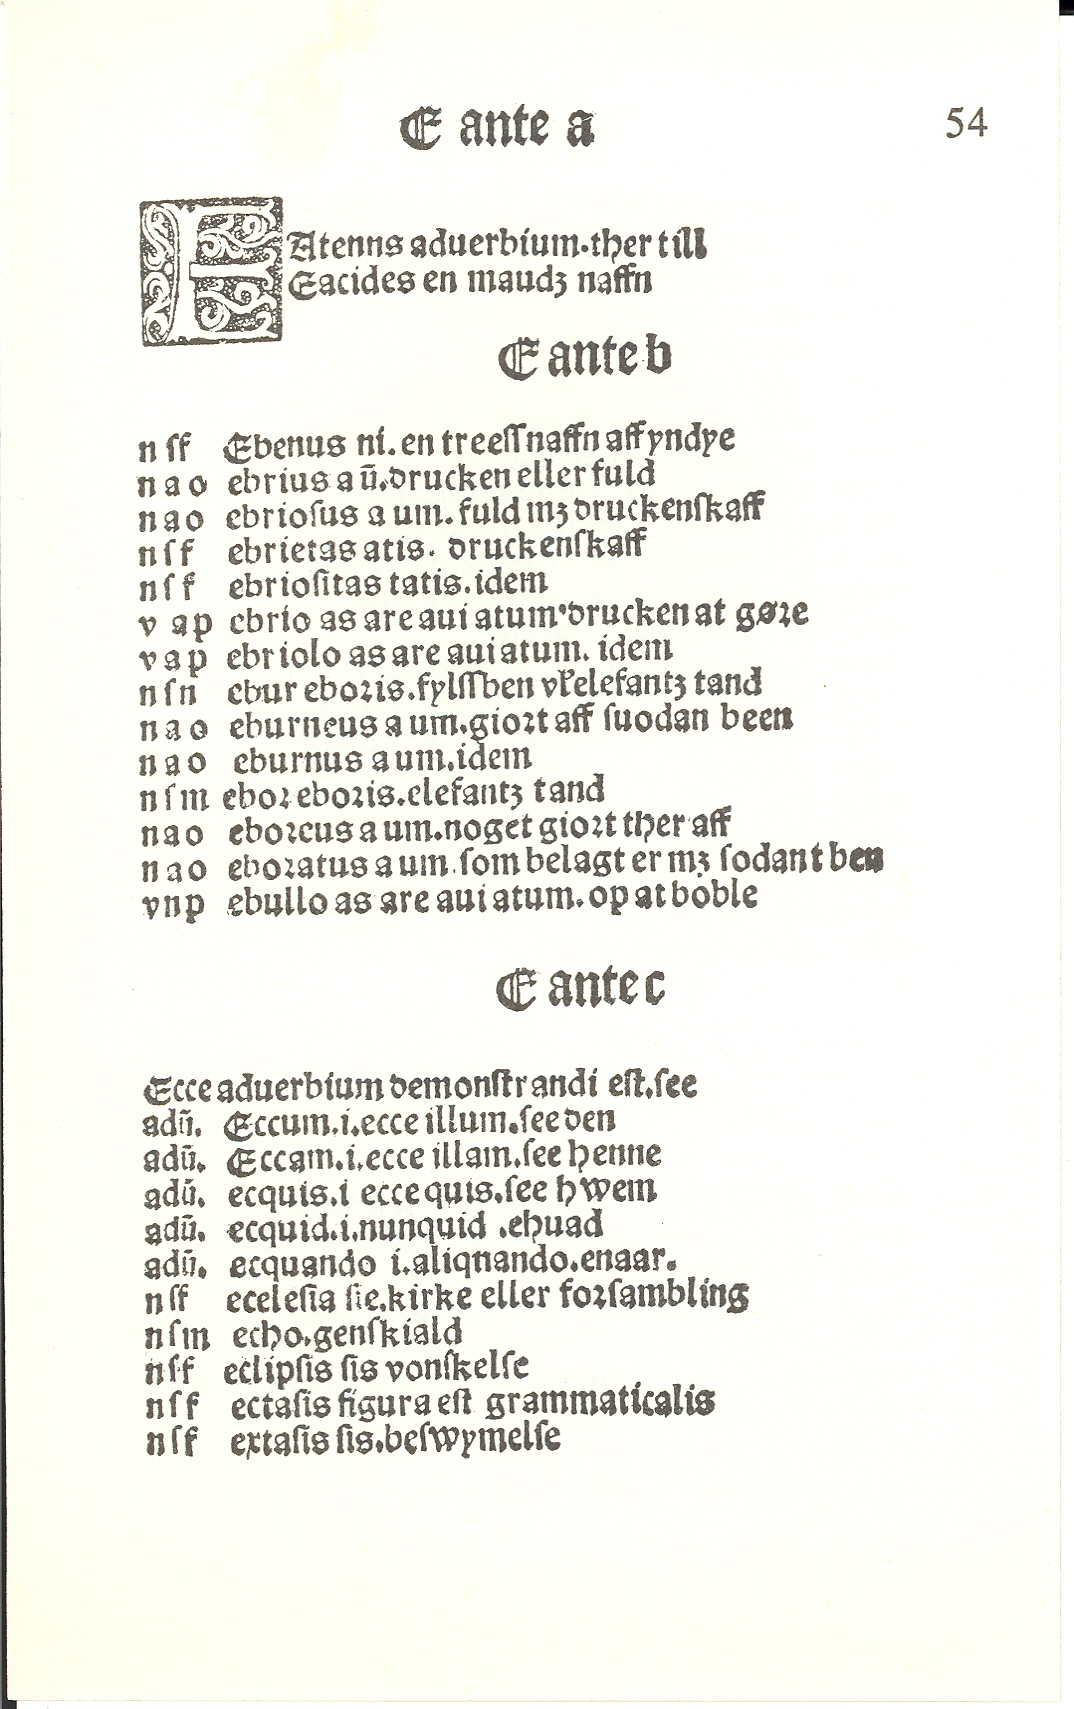 E ante a
54
EAtenns aduerbium.ther till
Eacides en maudʒ naffn
E ante b
n ſf Ebenus ni. en treeſſnaffn aff yndye
n a o ebrius a ū.drucken eller fuld
n a o ebrioſus a um. fuld mʒ druckenſkaff
n ſ f ebrietas atis. druckenſkaff
n ſ f ebrioſitas tatis.idem
v ap ebrio as are aui atum.drucken at gøꝛe
v a p ebriolo as are aui atum. idem
n ſ n ebur eboꝛis.fylſſben vel elefantʒ tand
n a o eburneus a um.gioꝛt aff ſuodan been
n a o eburnus a um.idem
n ſ m eboꝛ eboꝛis.elefantʒ tand
n a o eboꝛeus a um.noget gioꝛt ther aff
n a o eboꝛatus a um.ſom belagt er mʒ ſodant ben
vnp ebullo as are aui atum. op at boble
E ante c
Ecce aduerbium demonſtrandi eſt.ſee
adū. Eccum.i.ecce illum.ſee den
adū. Eccam.i.ecce illam.ſee henne
adū. ecquis.i ecce quis.ſee hwem
adū. ecquid.i.nunquid .ehuad
adū. ecquando i.aliqnando.enaar.
n ſf eceleſia ſie.kirke eller foꝛſambling
n ſm echo.genſkiald
n ſf eclipſis ſis vonſkelſe
n ſ f ectaſis figura eſt grammaticalis
n ſf extaſis ſis.beſwymelſe